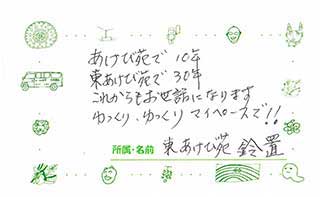 あけび苑で 10年
東あけび苑で 30年
これからもお世話になります
ゆっくり、ゆっくり マイペースで!!
所属・名前 東あけび苑 鈴置